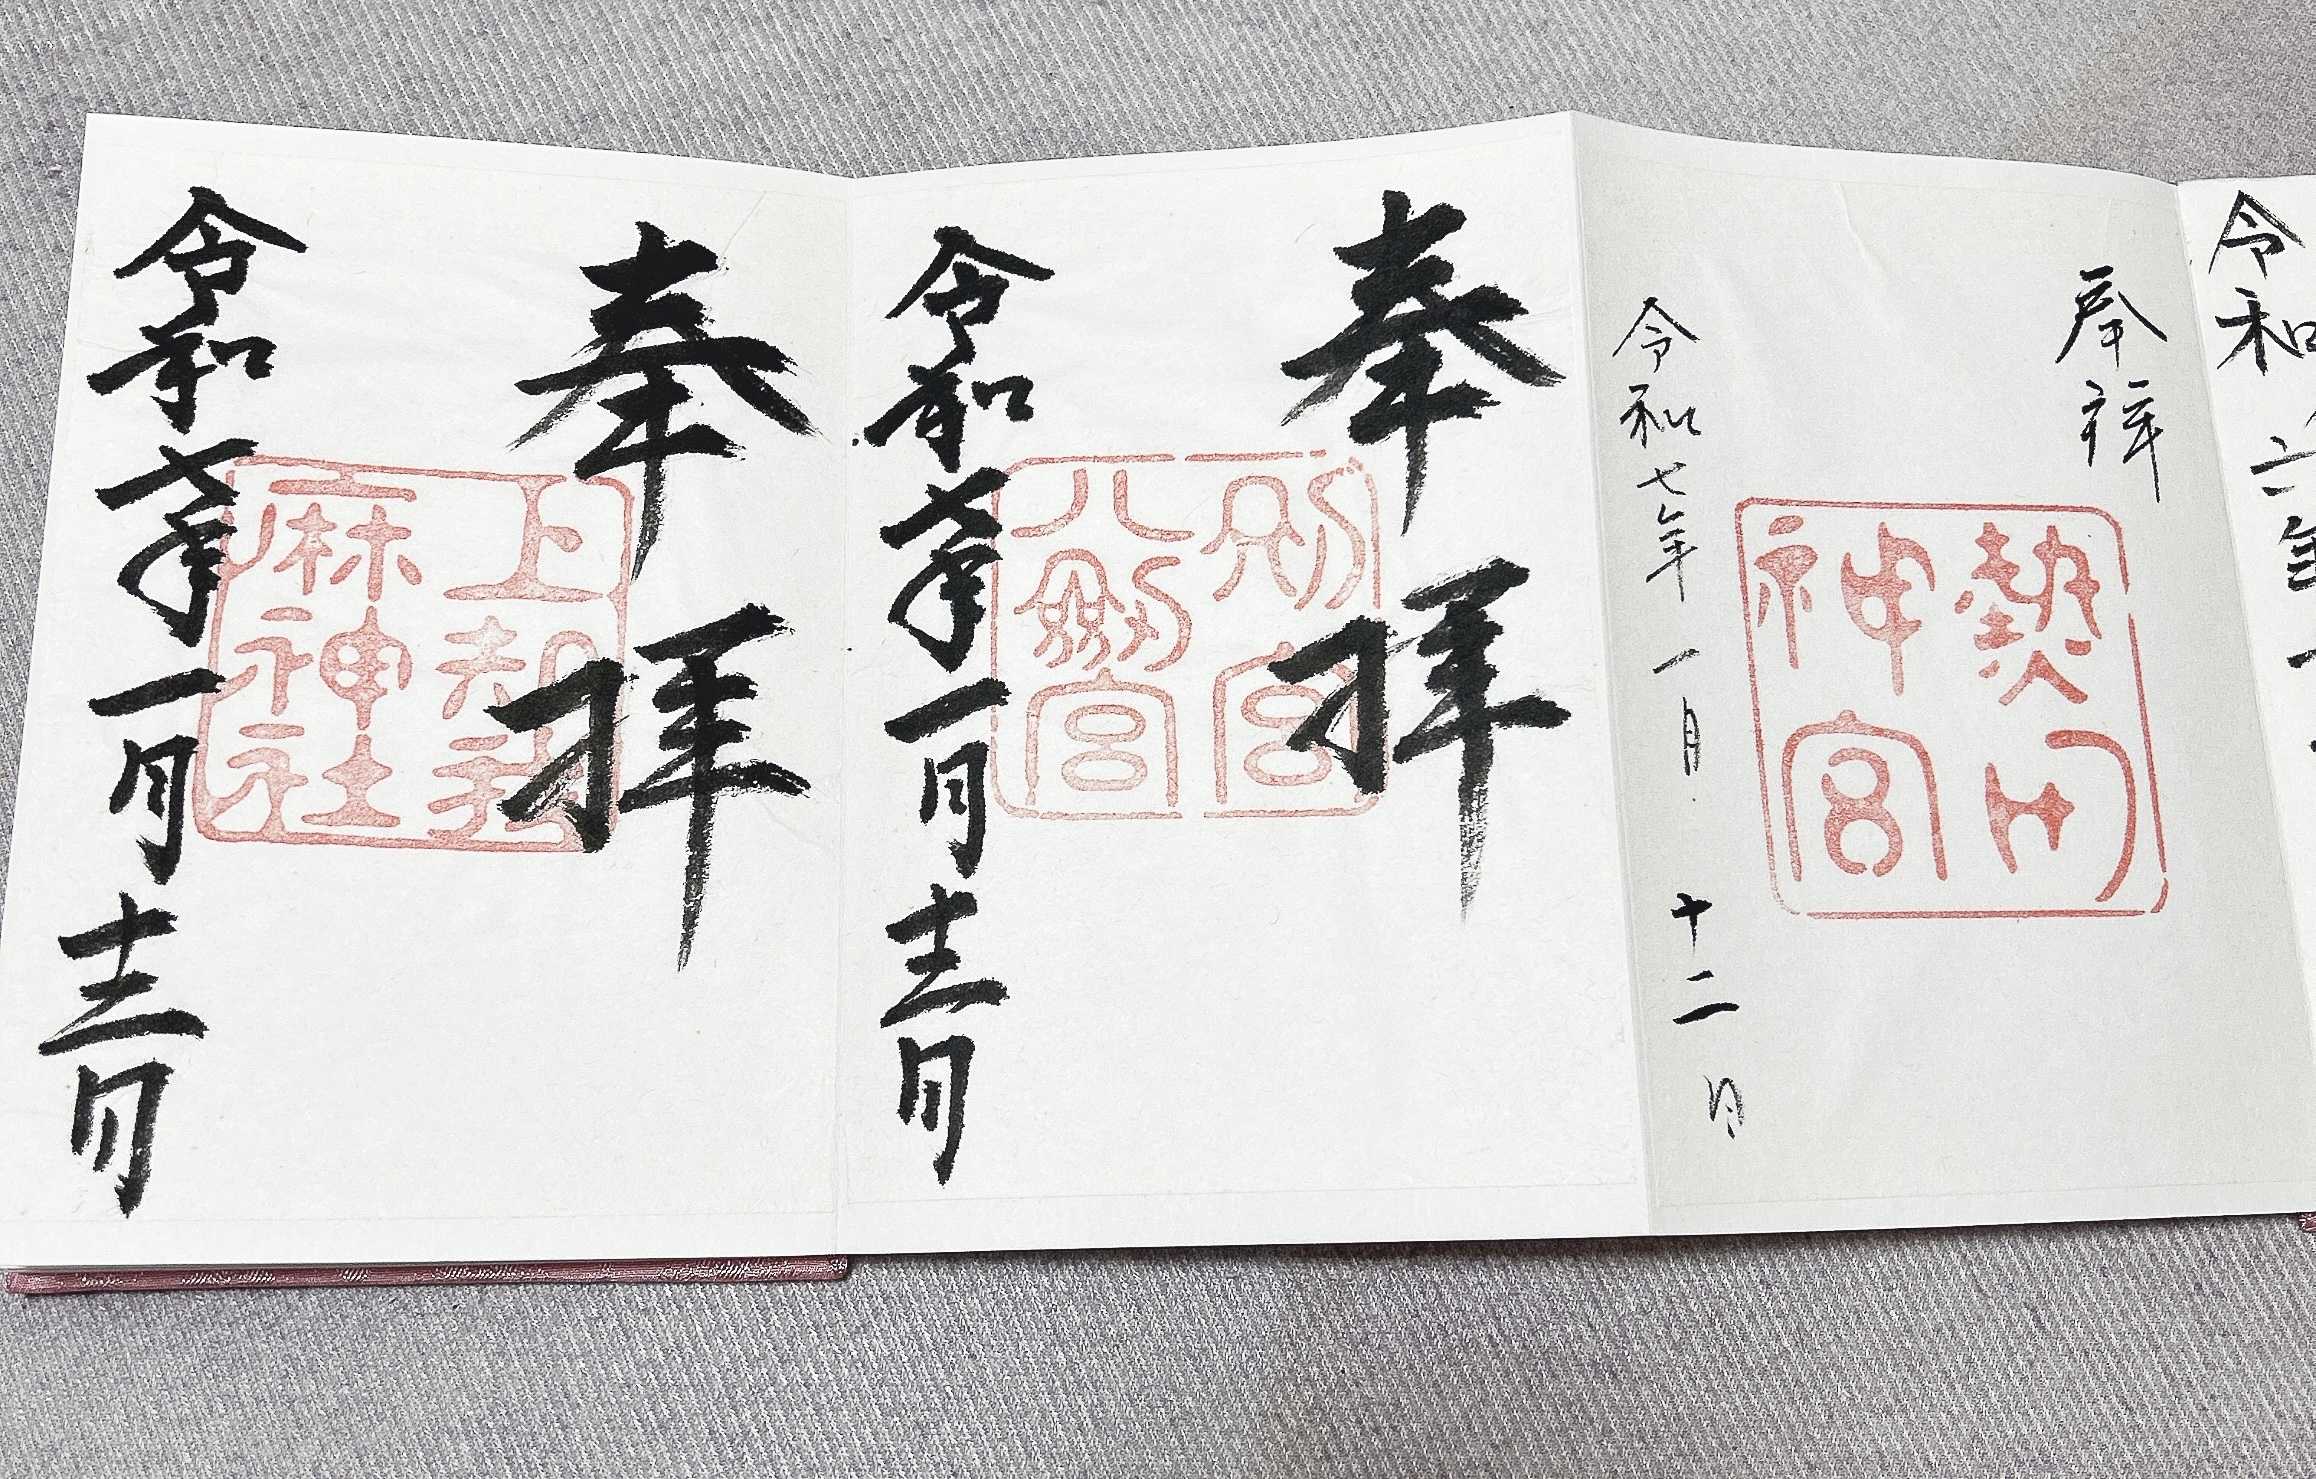 令和六年
奉拝
熱田
神宮
令和七年一月十二日
奉拝
別宮
八劔宮
令和七年一月十二日
奉拝
上知我
麻神社
令和七年一月十二日